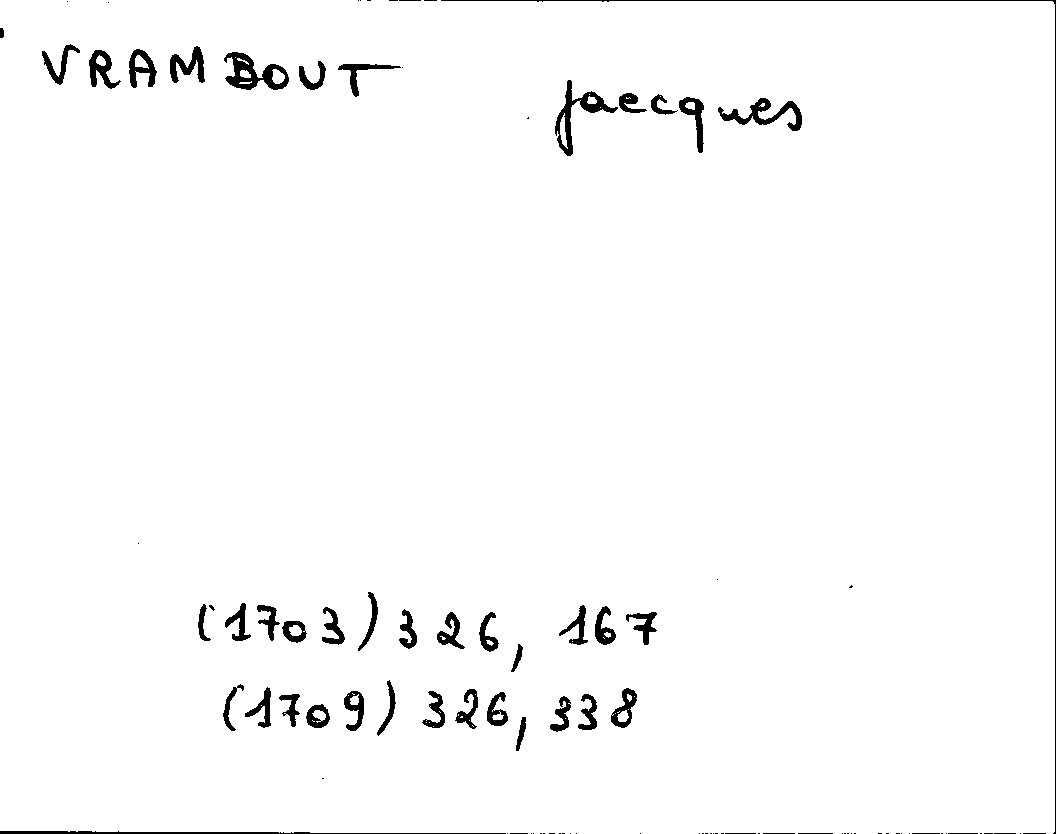 VRAMBOUT Jaecques
(1703) 326, 167
(1709) 326, 338